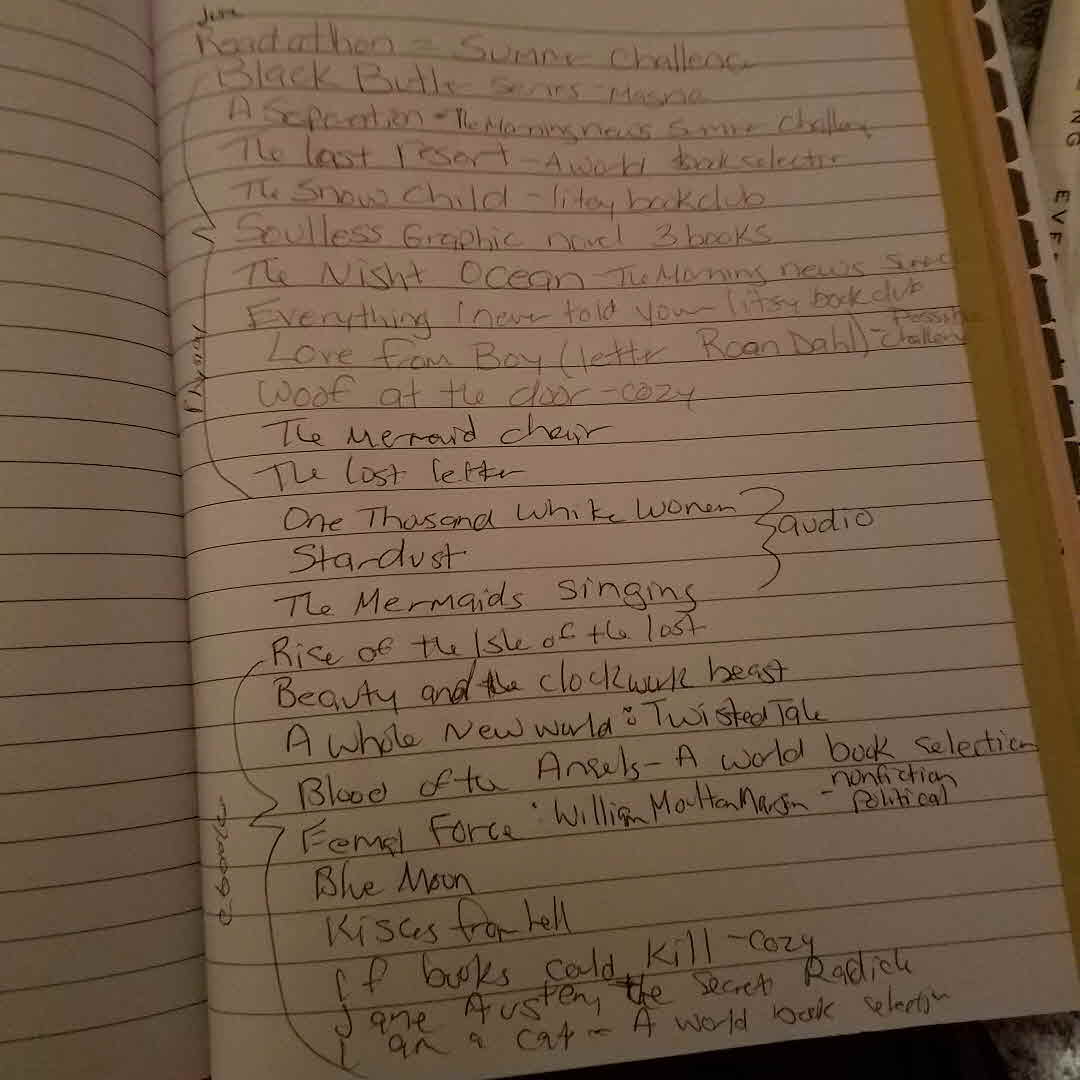 June
Readathon = Summr Challenge
Black Butle Series - Manga
A Separation - The Morning news Summr Challeng
The last resort - A world book selectin
The Snow Child - litsy bookclub
Soulless Graphic novel 3 books
The Night Ocean - The Morning news
Everything I never told you - litsy book club
Love from Boy (lettr Roan Dahl) - Possible Challeng
Woof at the door - cozy
The Mermaid chair
The lost letter
One Thosand White Women
audio
Stardust
The Mermaids Singing
Rise of the Isle of the lost
Beauty and the clockwork beast
A whole New world : Twisted Tale
Blood of the Angels - A world book selection
Femal Force : William Moulton Marsin - nonfiction political
Blue Moon
Kisses from hell
If books could kill - cozy
Jane Austen, the Secret Radicle
I am a cat - A world book selectin
Physical
ebooks
NG
EVE